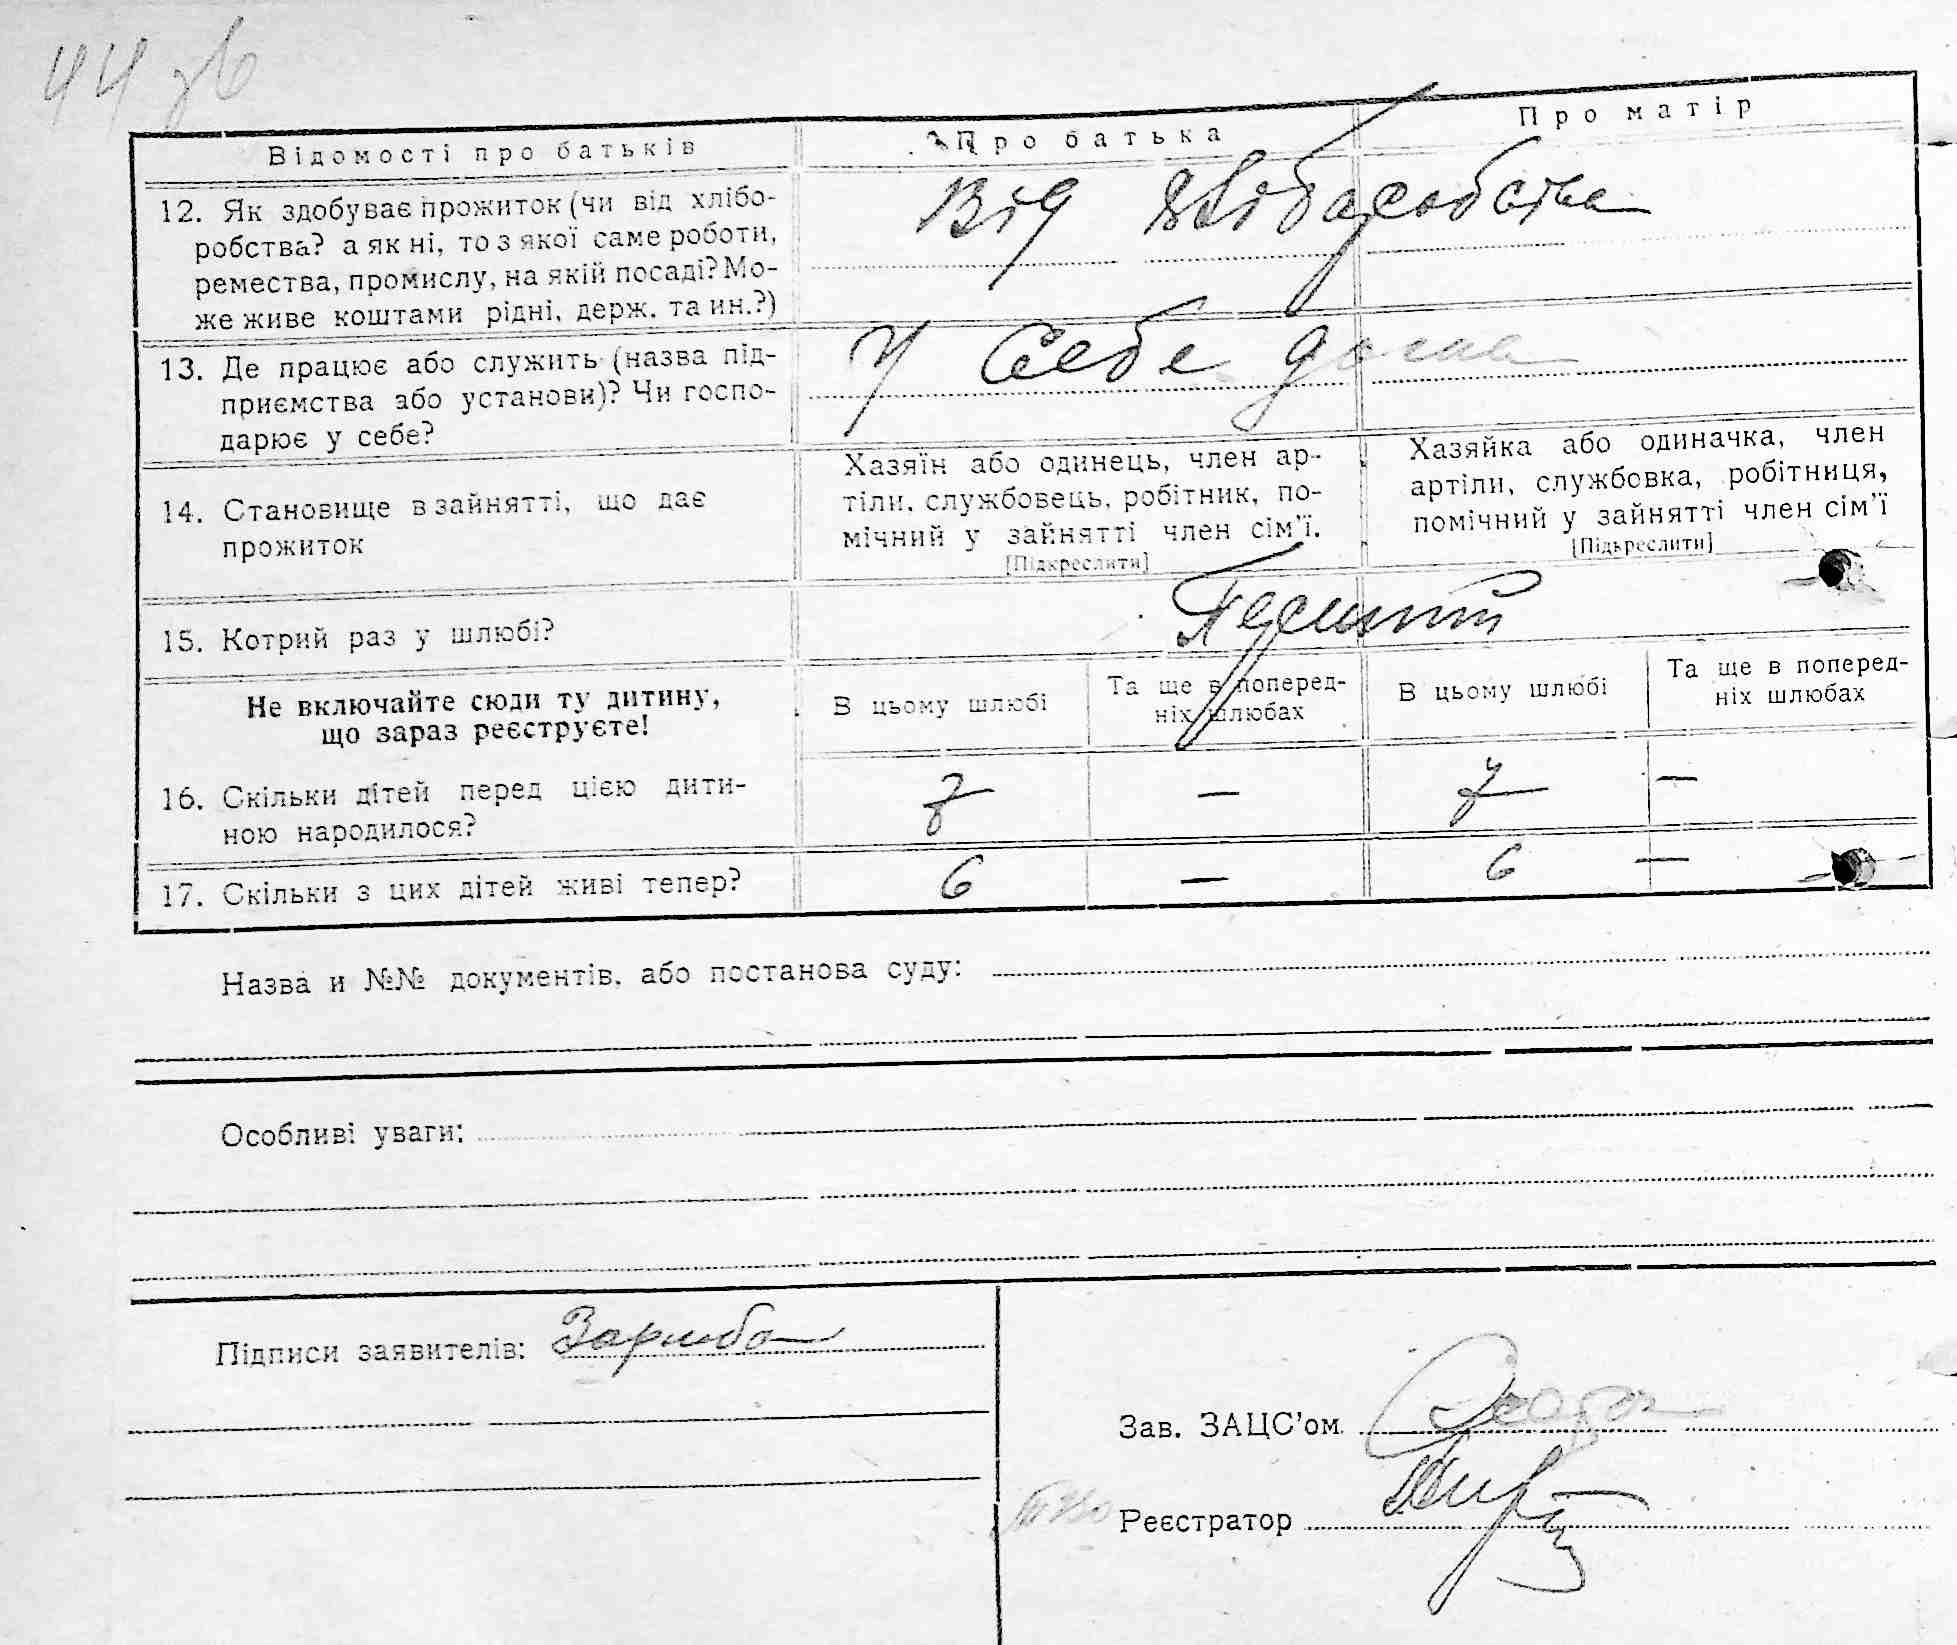 44 зв
Відомості про батьків
Про батька
Про матір
12. Як здобуває прожиток (чи від хлібо-
робства? а як ні, то з якої саме роботи,
ремества, промислу, на якій посаді? Мо-
же живе коштами рідні, держ. та ин.?)
Від хліборобства
13. Де працює або служить (назва під-
приємства або установи)? Чи госпо-
дарює у себе?
У себе дома
14. Становище в зайнятті, що дає
прожиток
Хазяїн або одинець, член ар-
тіли, службовець, робітник, по-
мічний у зайнятті член сім'ї.
[Підкреслити]
Хазяйка або одиначка, член
артіли, службовка, робітниця,
помічний у зайнятті член сім'ї
[Підкреслити]
15. Котрий раз у шлюбі?
Перший
Не включайте сюди ту дитину,
що зараз реєструєте!
В цьому шлюбі
Та ще в поперед-
ніх шлюбах
В цьому шлюбі
Та ще в поперед-
ніх шлюбах
16. Скільки дітей перед цією дити-
ною народилося?
7 — 7 —
17. Скільки з цих дітей живі тепер?
6 — 6 —
Назва и №№ документів, або постанова суду:
Особливі уваги:
Підписи заявителів:
Зав. ЗАЦС'ом
Реєстратор